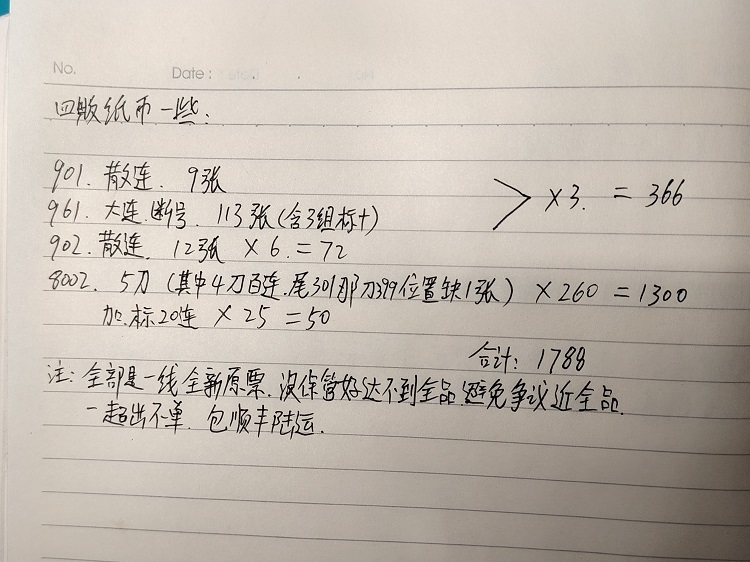 No. Date:
四版纸币一些:
901. 散连. 9张
961. 大连.断号. 113张(含3组标十) > ×3. = 366
902. 散连. 12张 ×6. = 72
8002. 5刀 (其中4刀百连.尾301那刀399位置缺1张) ×260 = 1300
加.标20连 ×25 = 50
合计: 1788
注: 全部是一线全新原票.没保管好达不到全品.避免争议近全品.
一起出不单. 包顺丰陆运.